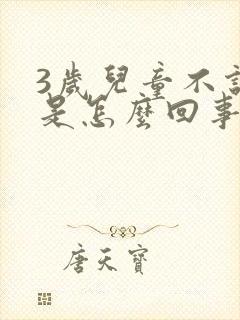 3歲兒童不
是怎麼回事
唐天寶